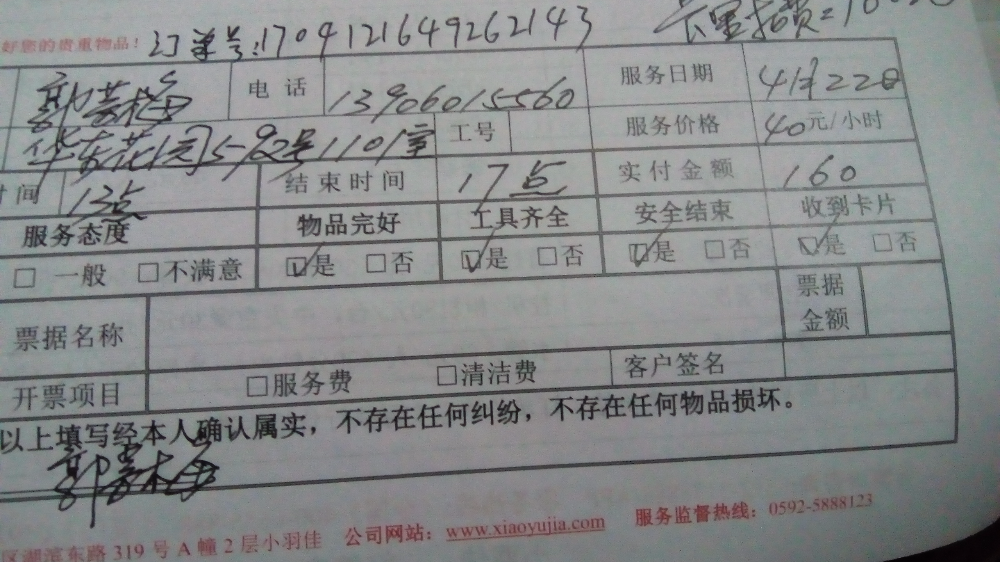 好您的贵重物品! 订单号:1704121649262143
郭 梅 电 话 13906015560 服务日期 4月22日
华东花园5-92号1101室 工号 服务价格 40元/小时
时间 13点 结束时间 17点 实付金额 160
服务态度 物品完好 工具齐全 安全结束 收到卡片
□ 一般 □不满意 ☑是 □否 ☑是 □否 ☑是 □否 ☑是 □否
票据名称 票据金额
开票项目 □服务费 □清洁费 客户签名
以上填写经本人确认属实，不存在任何纠纷，不存在任何物品损坏。
郭 梅
区湖滨东路 319 号 A 幢 2 层小羽佳 公司网站：www.xiaoyujia.com 服务监督热线：0592-5888123